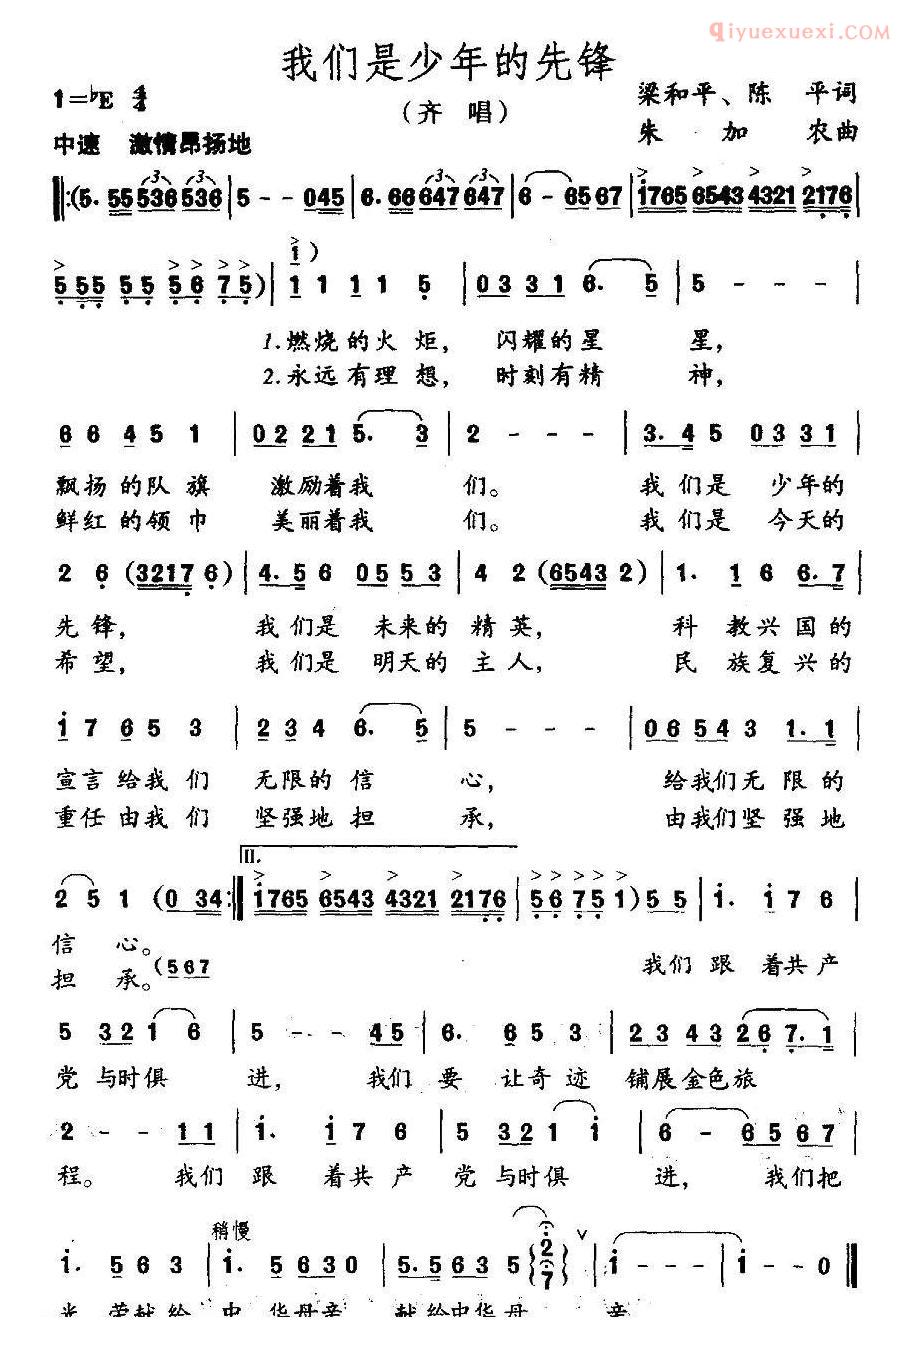 Qiyuexuexi.COM
我们是少年的先锋
1=♭E 4/4
（齐 唱）
梁和平、陈 平词
朱 加 农曲
中速 激情昂扬地
‖:(5. 55 536 536 | 5 - - 045 | 6. 66 647 647 | 6 - 6567 | i765 6543 4321 2176 |
5 55 55 56 75) | 1 1 1 1 5 | 03 31 6. 5 | 5 - - - |
1.燃烧的火 炬， 闪耀的星 星，
2.永远有理 想， 时刻有精 神，
6 6 4 5 1 | 02 21 5. 3 | 2 - - - | 3. 4 5 03 31 |
飘扬的队 旗 激励着我 们。 我 们是 少年的
鲜红的领 巾 美丽着我 们。 我 们是 今天的
2 6 (3217 6) | 4. 5 6 05 53 | 4 2 (6543 2) | 1. 1 6 6. 7 |
先 锋， 我 们是 未来的 精 英， 科 教兴 国的
希 望， 我 们是 明天的 主 人， 民 族复 兴的
i 7 6 5 3 | 2 3 4 6. 5 | 5 - - - | 06 54 3 1. 1 |
宣言给我 们 无限的 信 心， 给我们无 限的
重任由我 们 坚强地 担 承， 由我们坚 强地
II.
2 5 1 (0 34 :‖ i765 6543 4321 2176 | 56 75 1) 55 | i. i 7 6 |
信 心。
担 承。 (567
我们 跟 着共 产
5 32 1 6 | 5 - - 45 | 6. 6 5 3 | 23 43 26 7. 1 |
党 与时俱 进， 我们 要 让奇 迹 铺展金色旅
2 - - 11 | i. i 7 6 | 5 32 1 i | 6 - 65 67 |
程。 我们 跟 着共 产 党 与时俱 进， 我们把
稍慢
i. 5 6 3 | i. 5 63 0 | 5. 5 63 5 2/7 | i - - - | i - - 0 ‖
光 荣献 给 中 华母亲 献给中华 母 亲